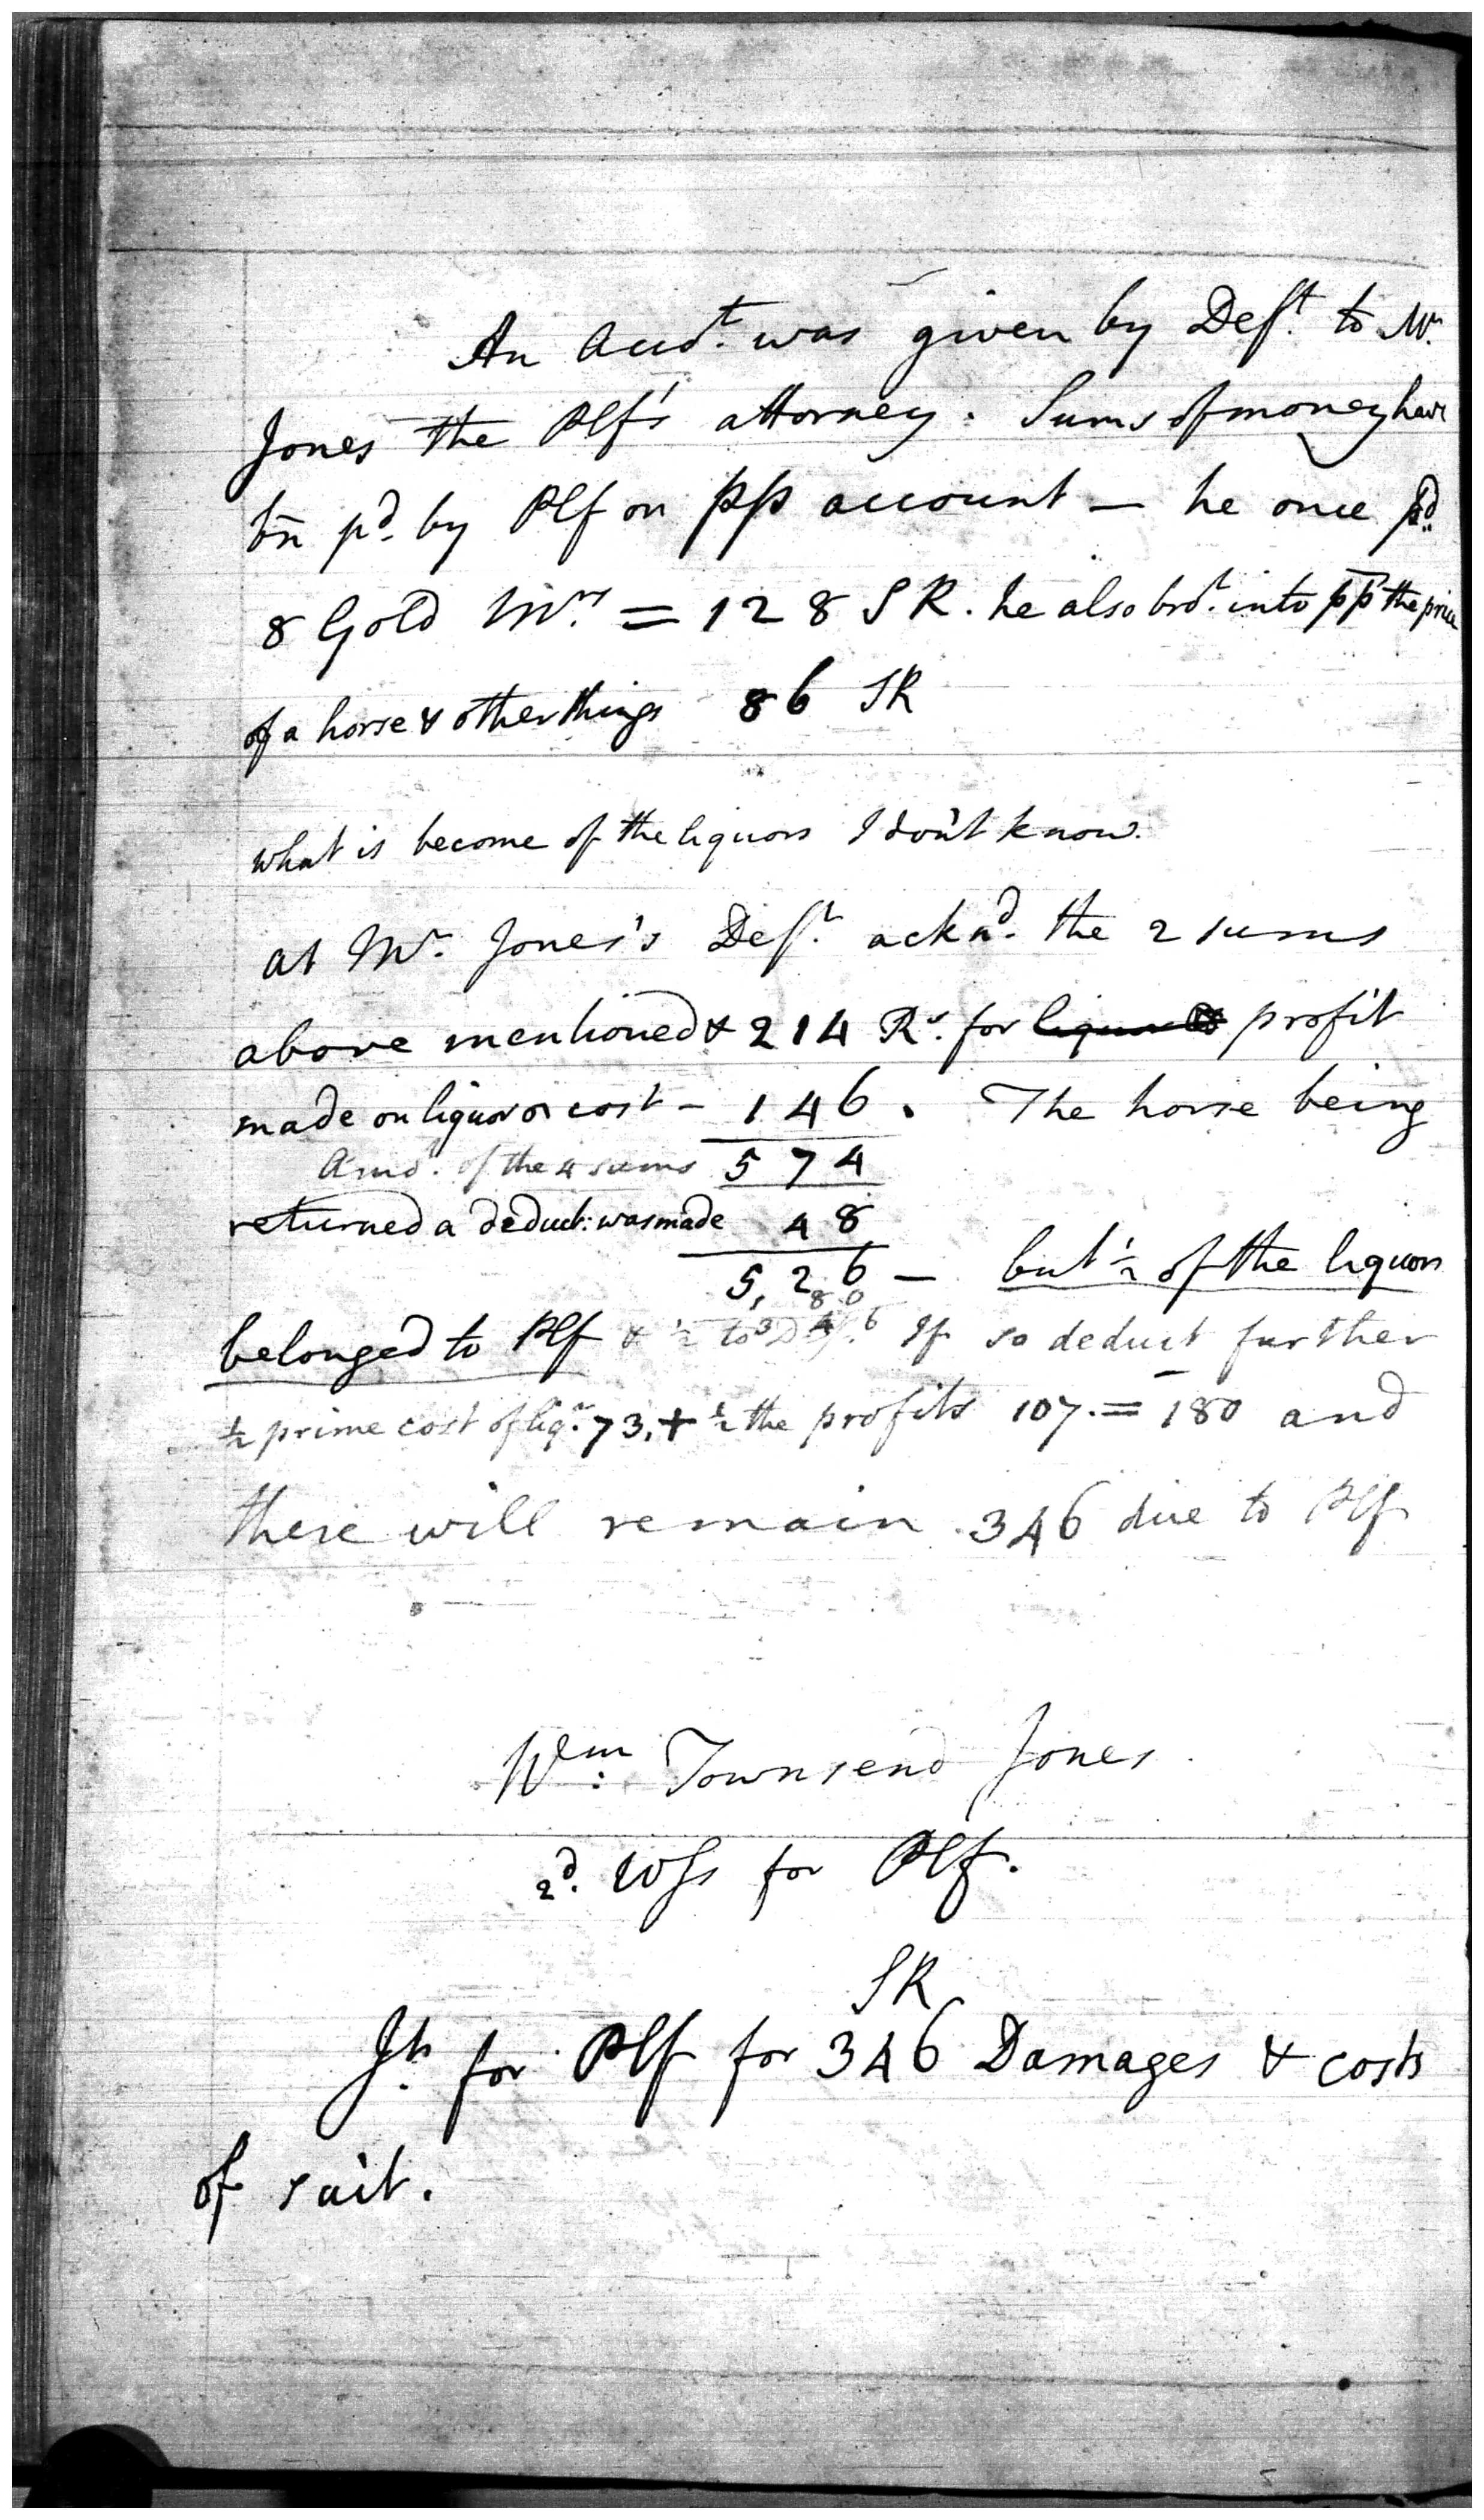 An Accot. was given by Deft. to Mr.
Jones the Plf's attorney: Sums of money have
bn pd. by Plf on pp account — he once pd.
8 Gold Mrs. = 128 SR. he also brot. into pp the price
of a horse & other things 86 SR
what is become of the liquors I don't know.
at Mr. Jones's Deft. acknd. the 2 sums
above mentioned & 214 Rs. for profit
made on liquor or cost - 146. The horse being
Amo. of the 4 sums 574
returned a deduct: was made 48
5,26 — but ½ of the liquors
80
346
belonged to Plf & ½ to Df. If so deduct further
½ prime cost of liqr. 73, + ½ the profits 107. = 180 and
there will remain 346 due to Plf
Wm: Townsend Jones
2d. Wss for Plf.
SR
Jt. for Plf for 346 Damages & costs
of suit.